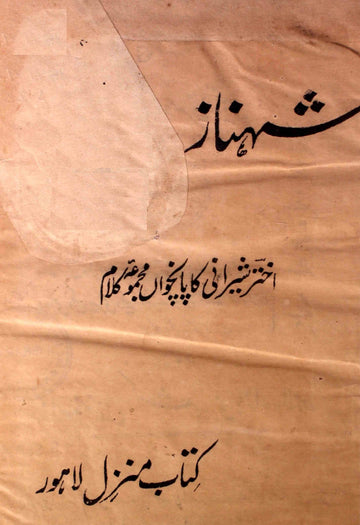 شہناز
اخترؔ شیرانی کا پانچواں مجموعۂ کلام
کتاب منزل لاہور